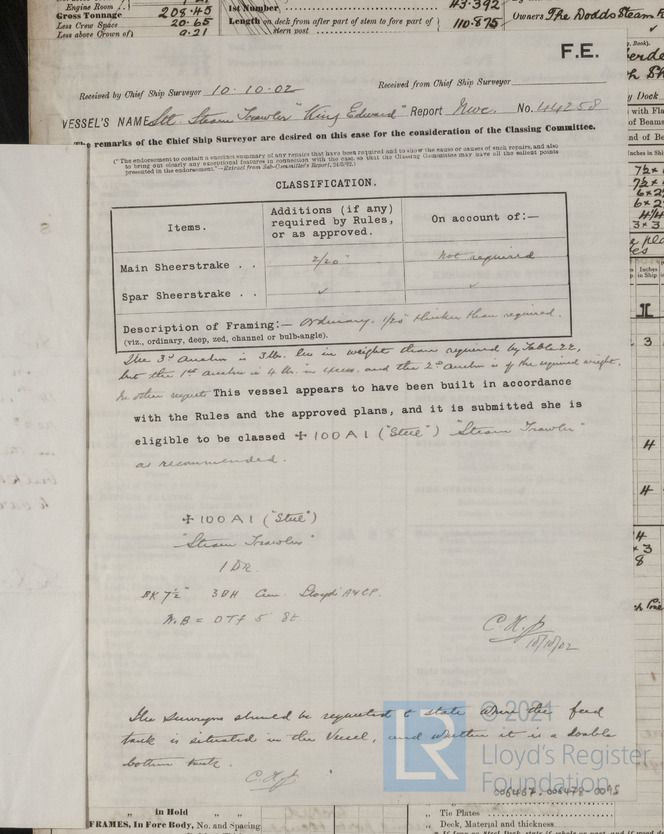 Engine Room
Gross Tonnage 208.45
Less Crew Space 20.65
Less above Crown of 9.21
1st Number 43.392
Length on deck from after part of stem to fore part of stern post 110.875
Owners The Dodds Steam
F.E.
Received by Chief Ship Surveyor 10.10.02
Received from Chief Ship Surveyor
VESSEL'S NAME Stl Steam Trawler "King Edward" Report Nwc. No. 44258
The remarks of the Chief Ship Surveyor are desired on this case for the consideration of the Classing Committee.
("The endorsement to contain a succinct summary of any repairs that have been required and to show the cause or causes of such repairs, and also
to bring out clearly any exceptional features in connection with the case, so that the Classing Committee may have all the salient points
presented in the endorsement."—Extract from Sub-Committee's Report,
CLASSIFICATION.
Items.
Additions (if any)
required by Rules,
or as approved.
On account of:—
Main Sheerstrake . . 2/20" not required
Spar Sheerstrake . . ✓ ✓
Description of Framing:— Ordinary. 1/20" thicker than required.
(viz., ordinary, deep, zed, channel or bulb-angle).
The 3rd Anchor is 3 lbs. less in weight than required by Table 22,
but the 1st Anchor is 4 lbs. in excess, and the 2nd Anchor is of the required weight.
In other respects This vessel appears to have been built in accordance
with the Rules and the approved plans, and it is submitted she is
eligible to be classed ✠ 100 A 1 ("Steel") "Steam Trawler"
as recommended.
✠ 100 A 1 ("Steel")
"Steam Trawler"
1 DK.
BK 7½" 3BH Cem. Lloyd's A&CP.
W.B = DTf 5 8t
10/10/02
The Surveyors should be requested to state where the feed
tank is situated in the Vessel, and whether it is a double
bottom tank.
© 2021
LR
Lloyd's Register
Foundation
006467-006478-0095
in Hold
FRAMES, In Fore Body, No. and Spacing
Tie Plates
Deck, Material and thickness